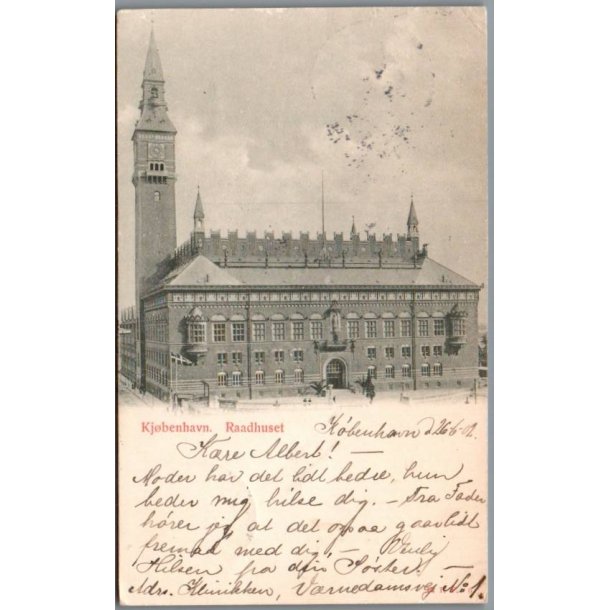 Kjøbenhavn. Raadhuset
København d 26/6-02.
Kære Albert! —
Moder har det lidt bedre, hun
beder mig hilse dig. — Fra Fader
hører jeg at det ogsaa gaar lidt
fremad med dig, — Venlig
Hilsen fra din Søster.
Adrs. Klinikken, Værnedamsvej No 1.